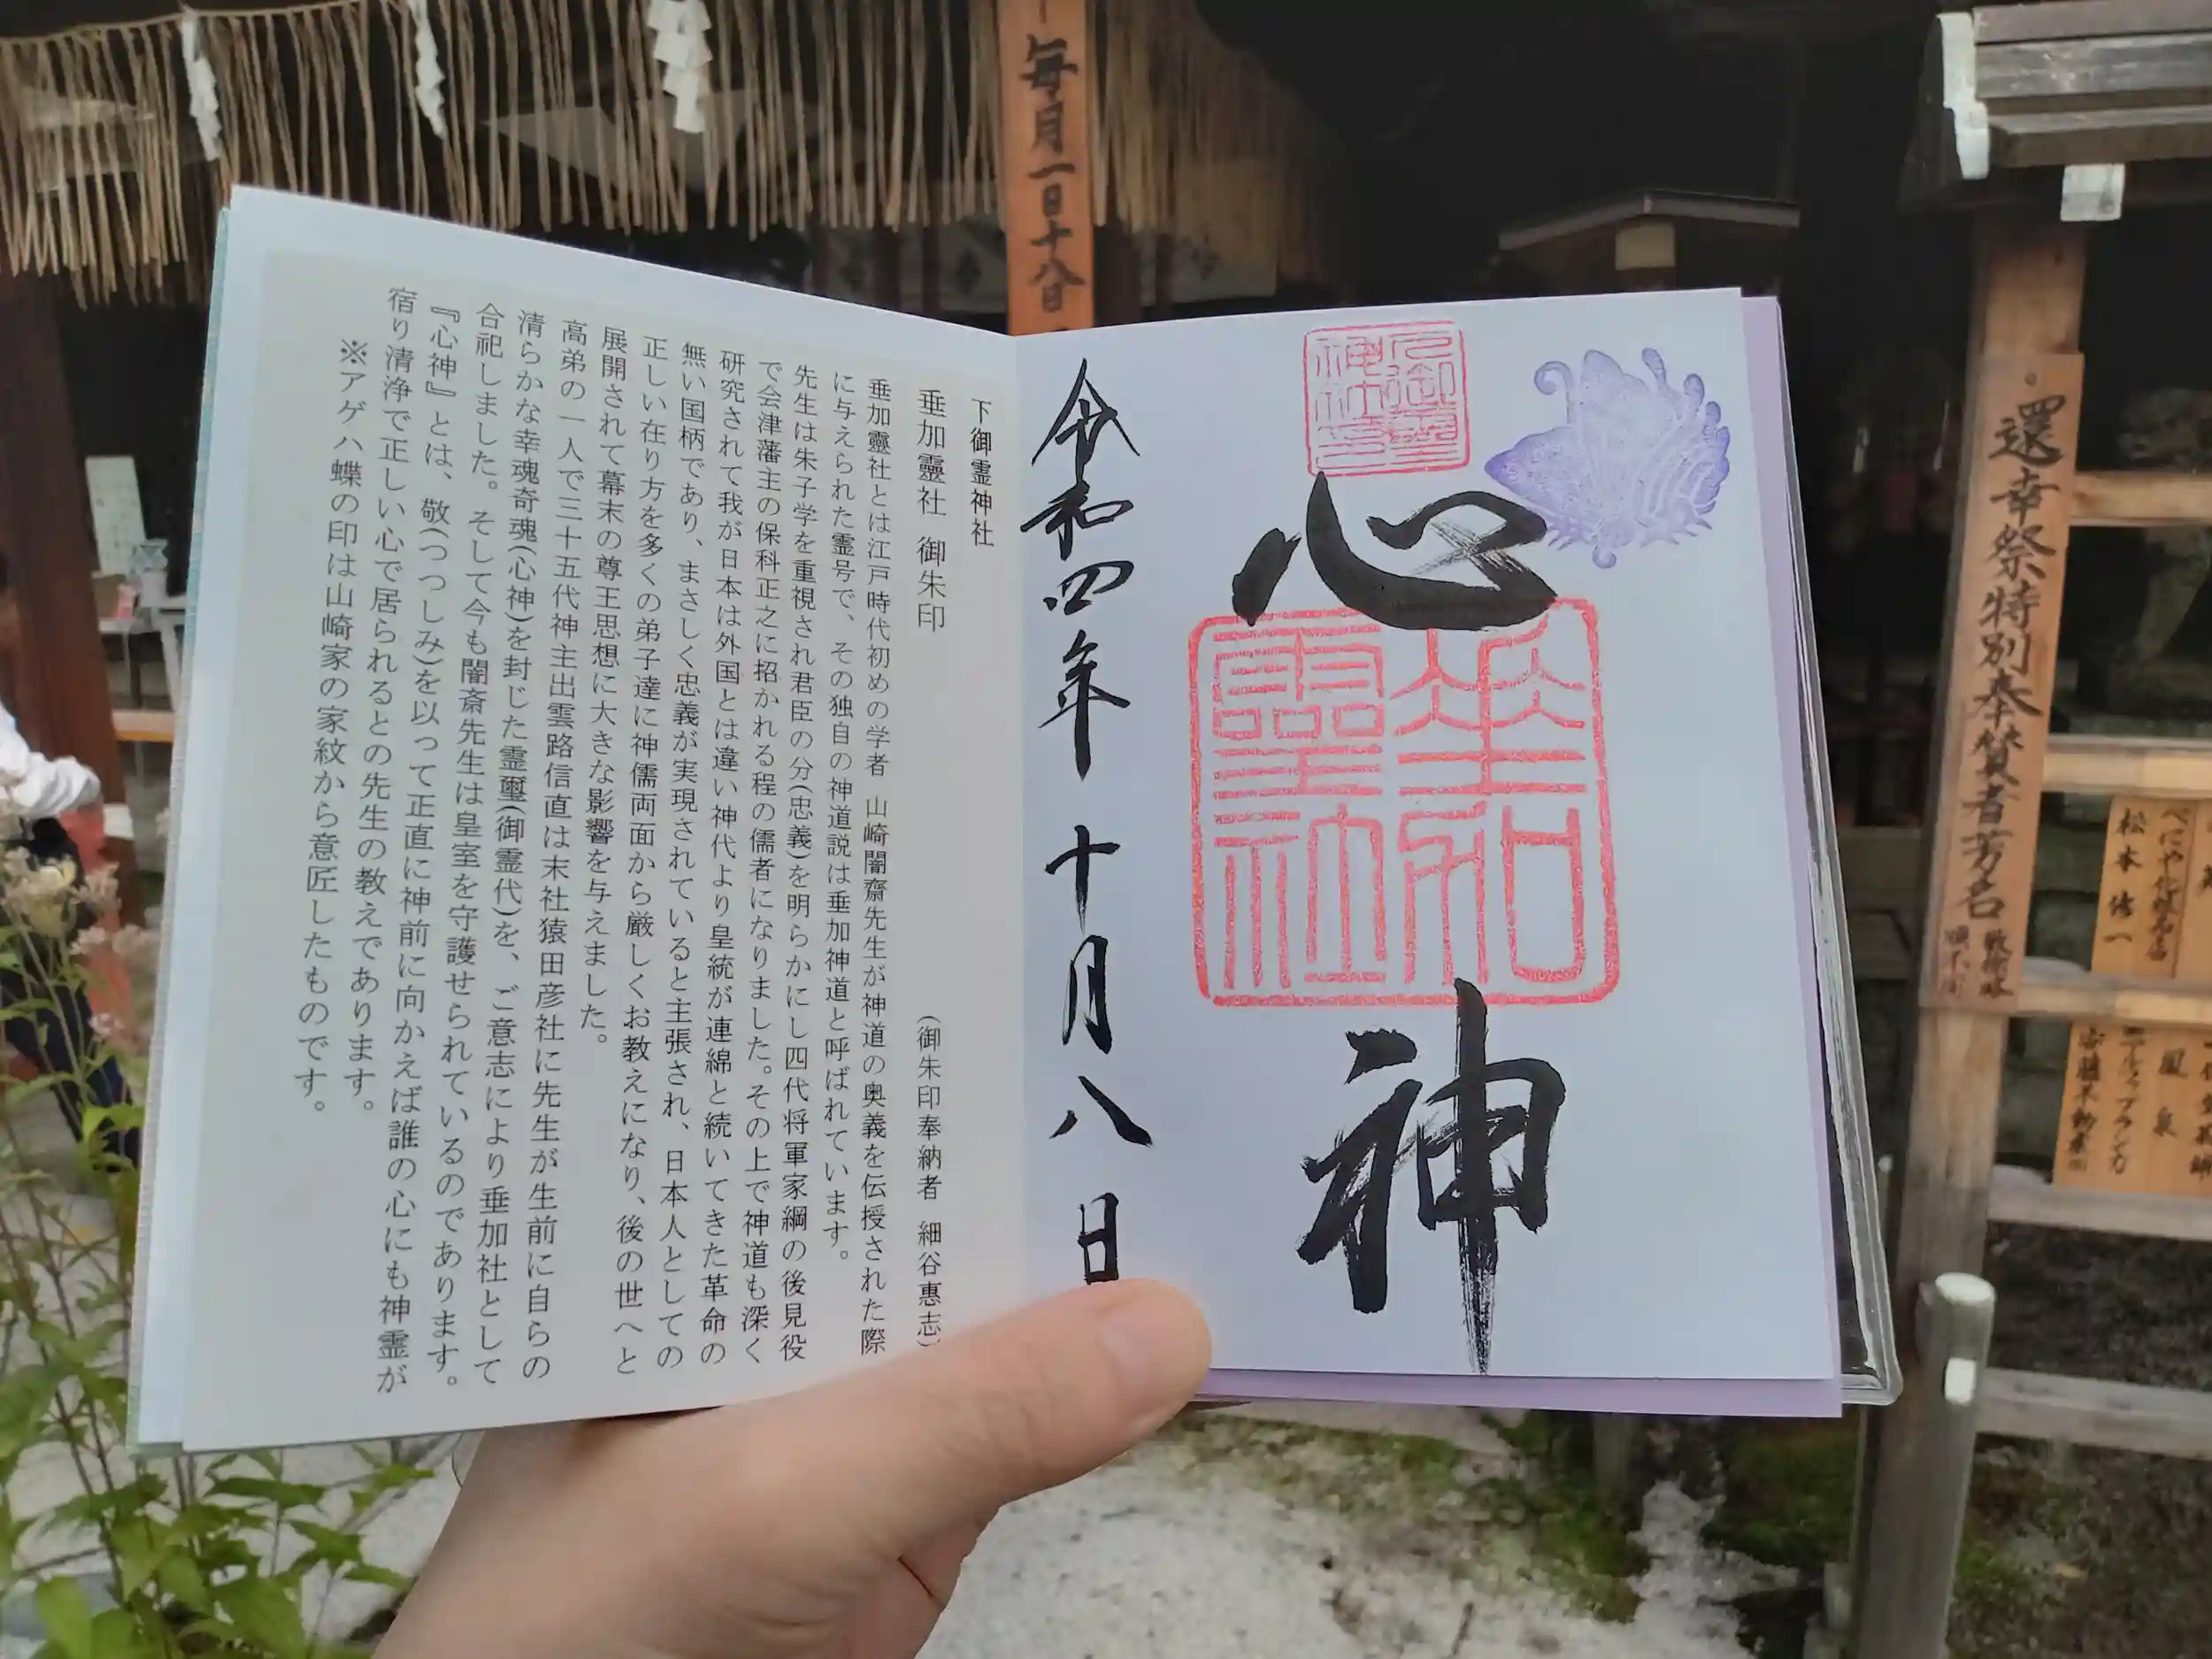 毎月一日十八日
下御霊神社
垂加靈社 御朱印
(御朱印奉納者 細谷惠志)
垂加靈社とは江戸時代初めの学者 山崎闇齋先生が神道の奥義を伝授された際
に与えられた霊号で、その独自の神道説は垂加神道と呼ばれています。
先生は朱子学を重視され君臣の分(忠義)を明らかにし四代将軍家綱の後見役
で会津藩主の保科正之に招かれる程の儒者になりました。その上で神道も深く
研究されて我が日本は外国とは違い神代より皇統が連綿と続いてきた革命の
無い国柄であり、まさしく忠義が実現されていると主張され、日本人としての
正しい在り方を多くの弟子達に神儒両面から厳しくお教えになり、後の世へと
展開されて幕末の尊王思想に大きな影響を与えました。
高弟の一人で三十五代神主出雲路信直は末社猿田彦社に先生が生前に自らの
清らかな幸魂奇魂(心神)を封じた霊璽(御霊代)を、ご意志により垂加社として
合祀しました。そして今も闇斎先生は皇室を守護せられているのであります。
『心神』とは、敬(つつしみ)を以って正直に神前に向かえば誰の心にも神霊が
宿り清浄で正しい心で居られるとの先生の教えであります。
※アゲハ蝶の印は山崎家の家紋から意匠したものです。
心神
下御霊神社
垂加靈社
令和四年十月八日
還幸祭特別奉賛者芳名
松本修一
風泉